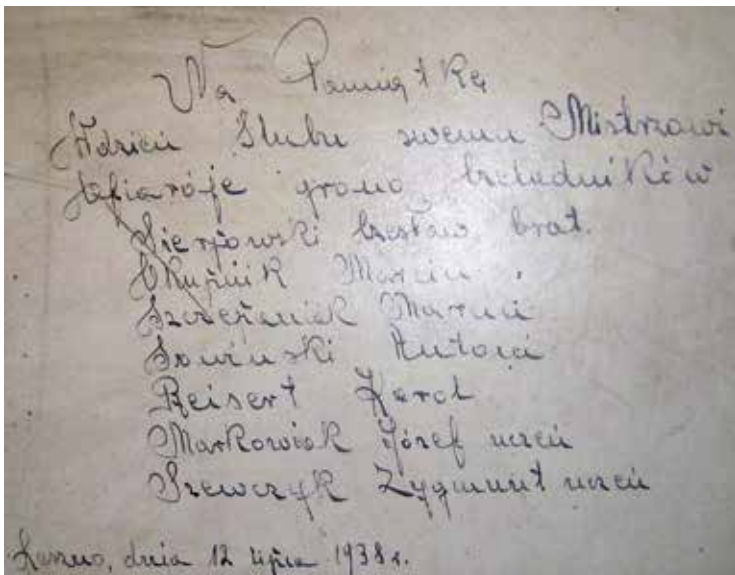 Na Pamiątkę
Wdzień Slubu swemu Mistrzowi
Ofiaróje grono Czeladników
Sierpowski Czesław brat.
Skupnik Marcin
Szczepaniak Marcin
Sowinski Antoni
Reisert Karol
Markowiak Józef uczeń
Szewczyk Zygmunt uczeń
Leszno, dnia 12 lipca 1938 r.